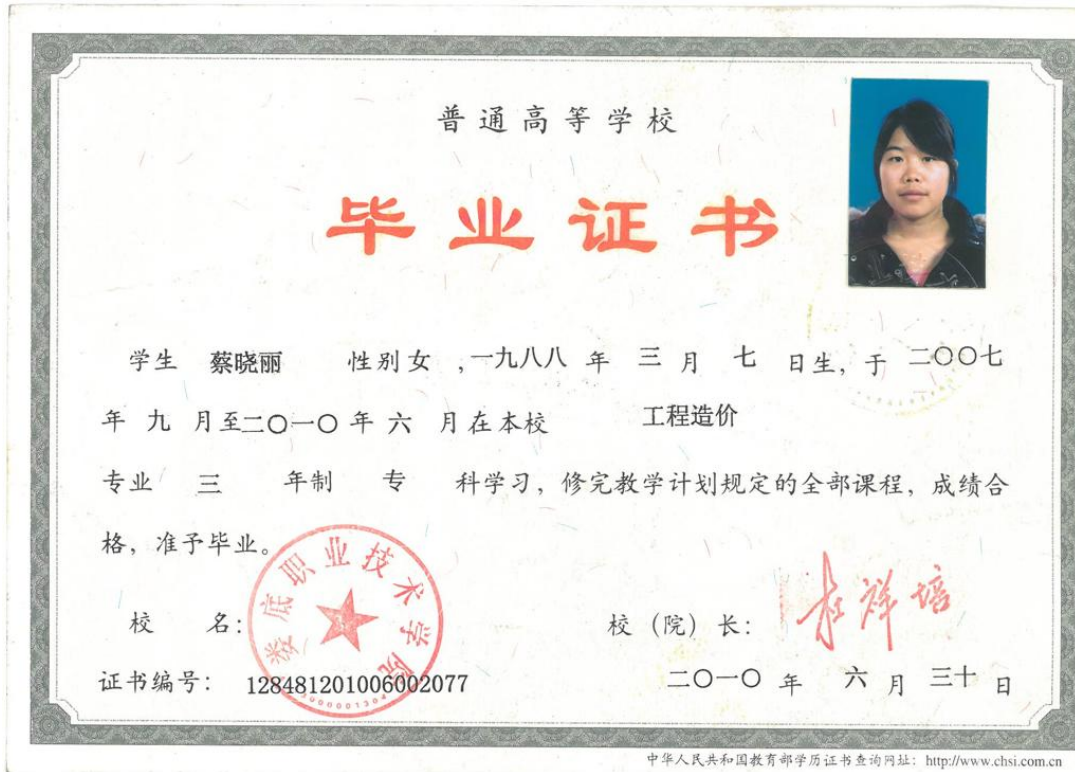 普通高等学校
毕业证书
学生 蔡晓丽 性别 女 ，一九八八 年 三 月 七 日生，于 二〇〇七
年 九 月至二〇一〇年 六 月在本校 工程造价
专业 三 年制 专 科学习，修完教学计划规定的全部课程，成绩合
格，准予毕业。
娄底职业技术学院
校 名： 校（院）长：
证书编号： 128481201006002077 二〇一〇 年 六 月 三十 日
中华人民共和国教育部学历证书查询网址：http://www.chsi.com.cn